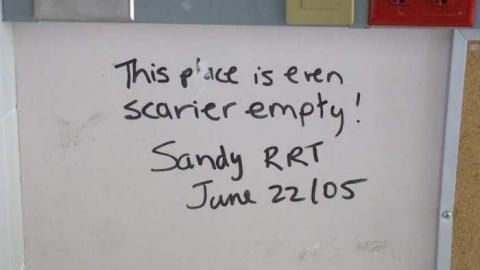 This place is even
scarier empty!
Sandy RRT
June 22/05